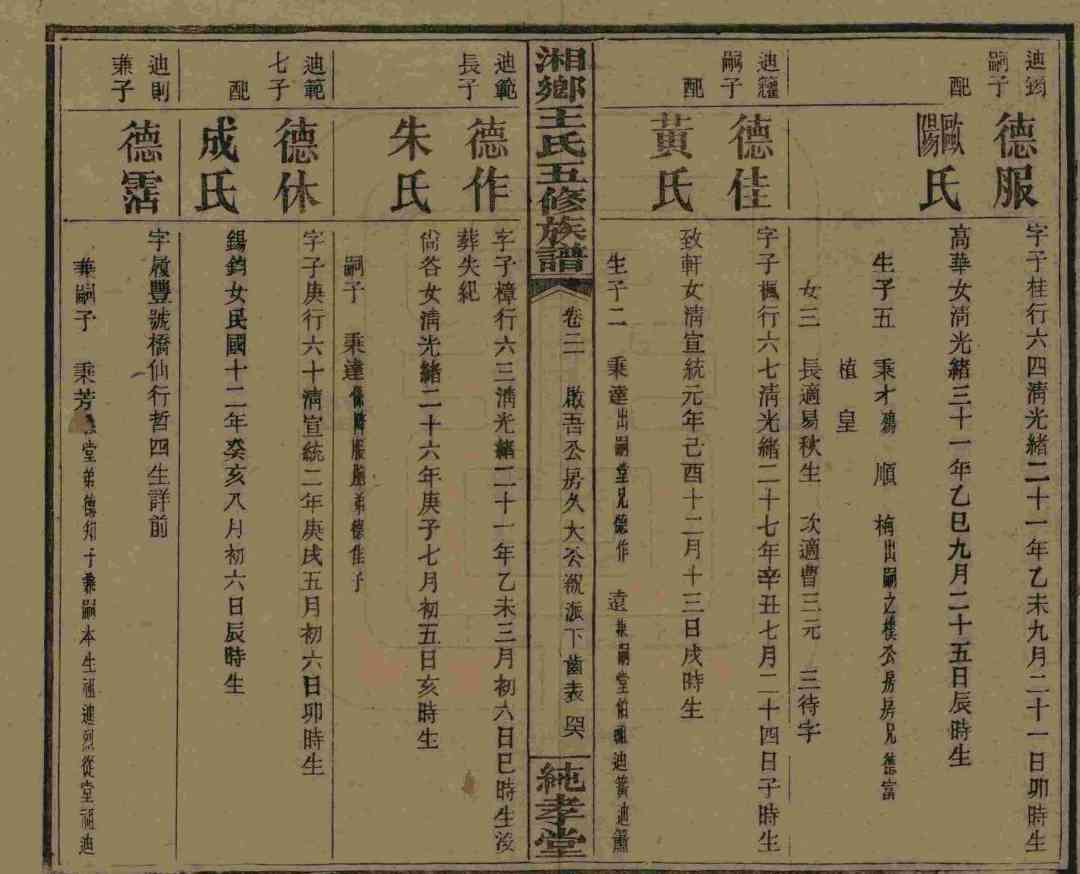 迪鈞嗣子
德服
字子桂行六四淸光緒二十一年乙未九月二十一日卯時生
配
歐陽氏
高華女淸光緒三十一年乙巳九月二十五日辰時生
生子五 秉才 順 梅出嗣之樸公房房兄德富
植 皇
女三 長適易秋生 次適曹三元 三待字
迪籛嗣子
德佳
字子楓行六七淸光緒二十七年辛丑七月二十四日子時生
配
黃氏
致軒女淸宣統元年己酉十二月十三日戌時生
生子二 秉達出嗣堂兄德作 遠兼嗣堂伯祖迪簧迪
湘鄉王氏五修族譜
卷二 啟吾公房久大公祝派下齒表
純孝堂
迪範長子
德作
字子樟行六三淸光緒二十一年乙未三月初六日巳時生沒
葬失紀
朱氏
尙谷女淸光緒二十六年庚子七月初五日亥時生
嗣子 秉達係胞弟德佳子
迪範七子
德休
字子庚行六十淸宣統二年庚戌五月初六日卯時生
配
成氏
錫鈞女民國十二年癸亥八月初六日辰時生
迪則兼子
德霑
字履豐號橋仙行哲四生詳前
兼嗣子 秉芳 堂弟德知子兼嗣本生祖迪烈從堂祖迪